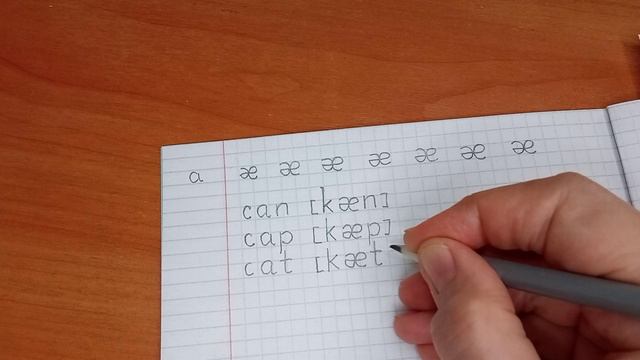 a æ æ æ æ æ æ æ
can [kæn]
cap [kæp]
cat [kæt